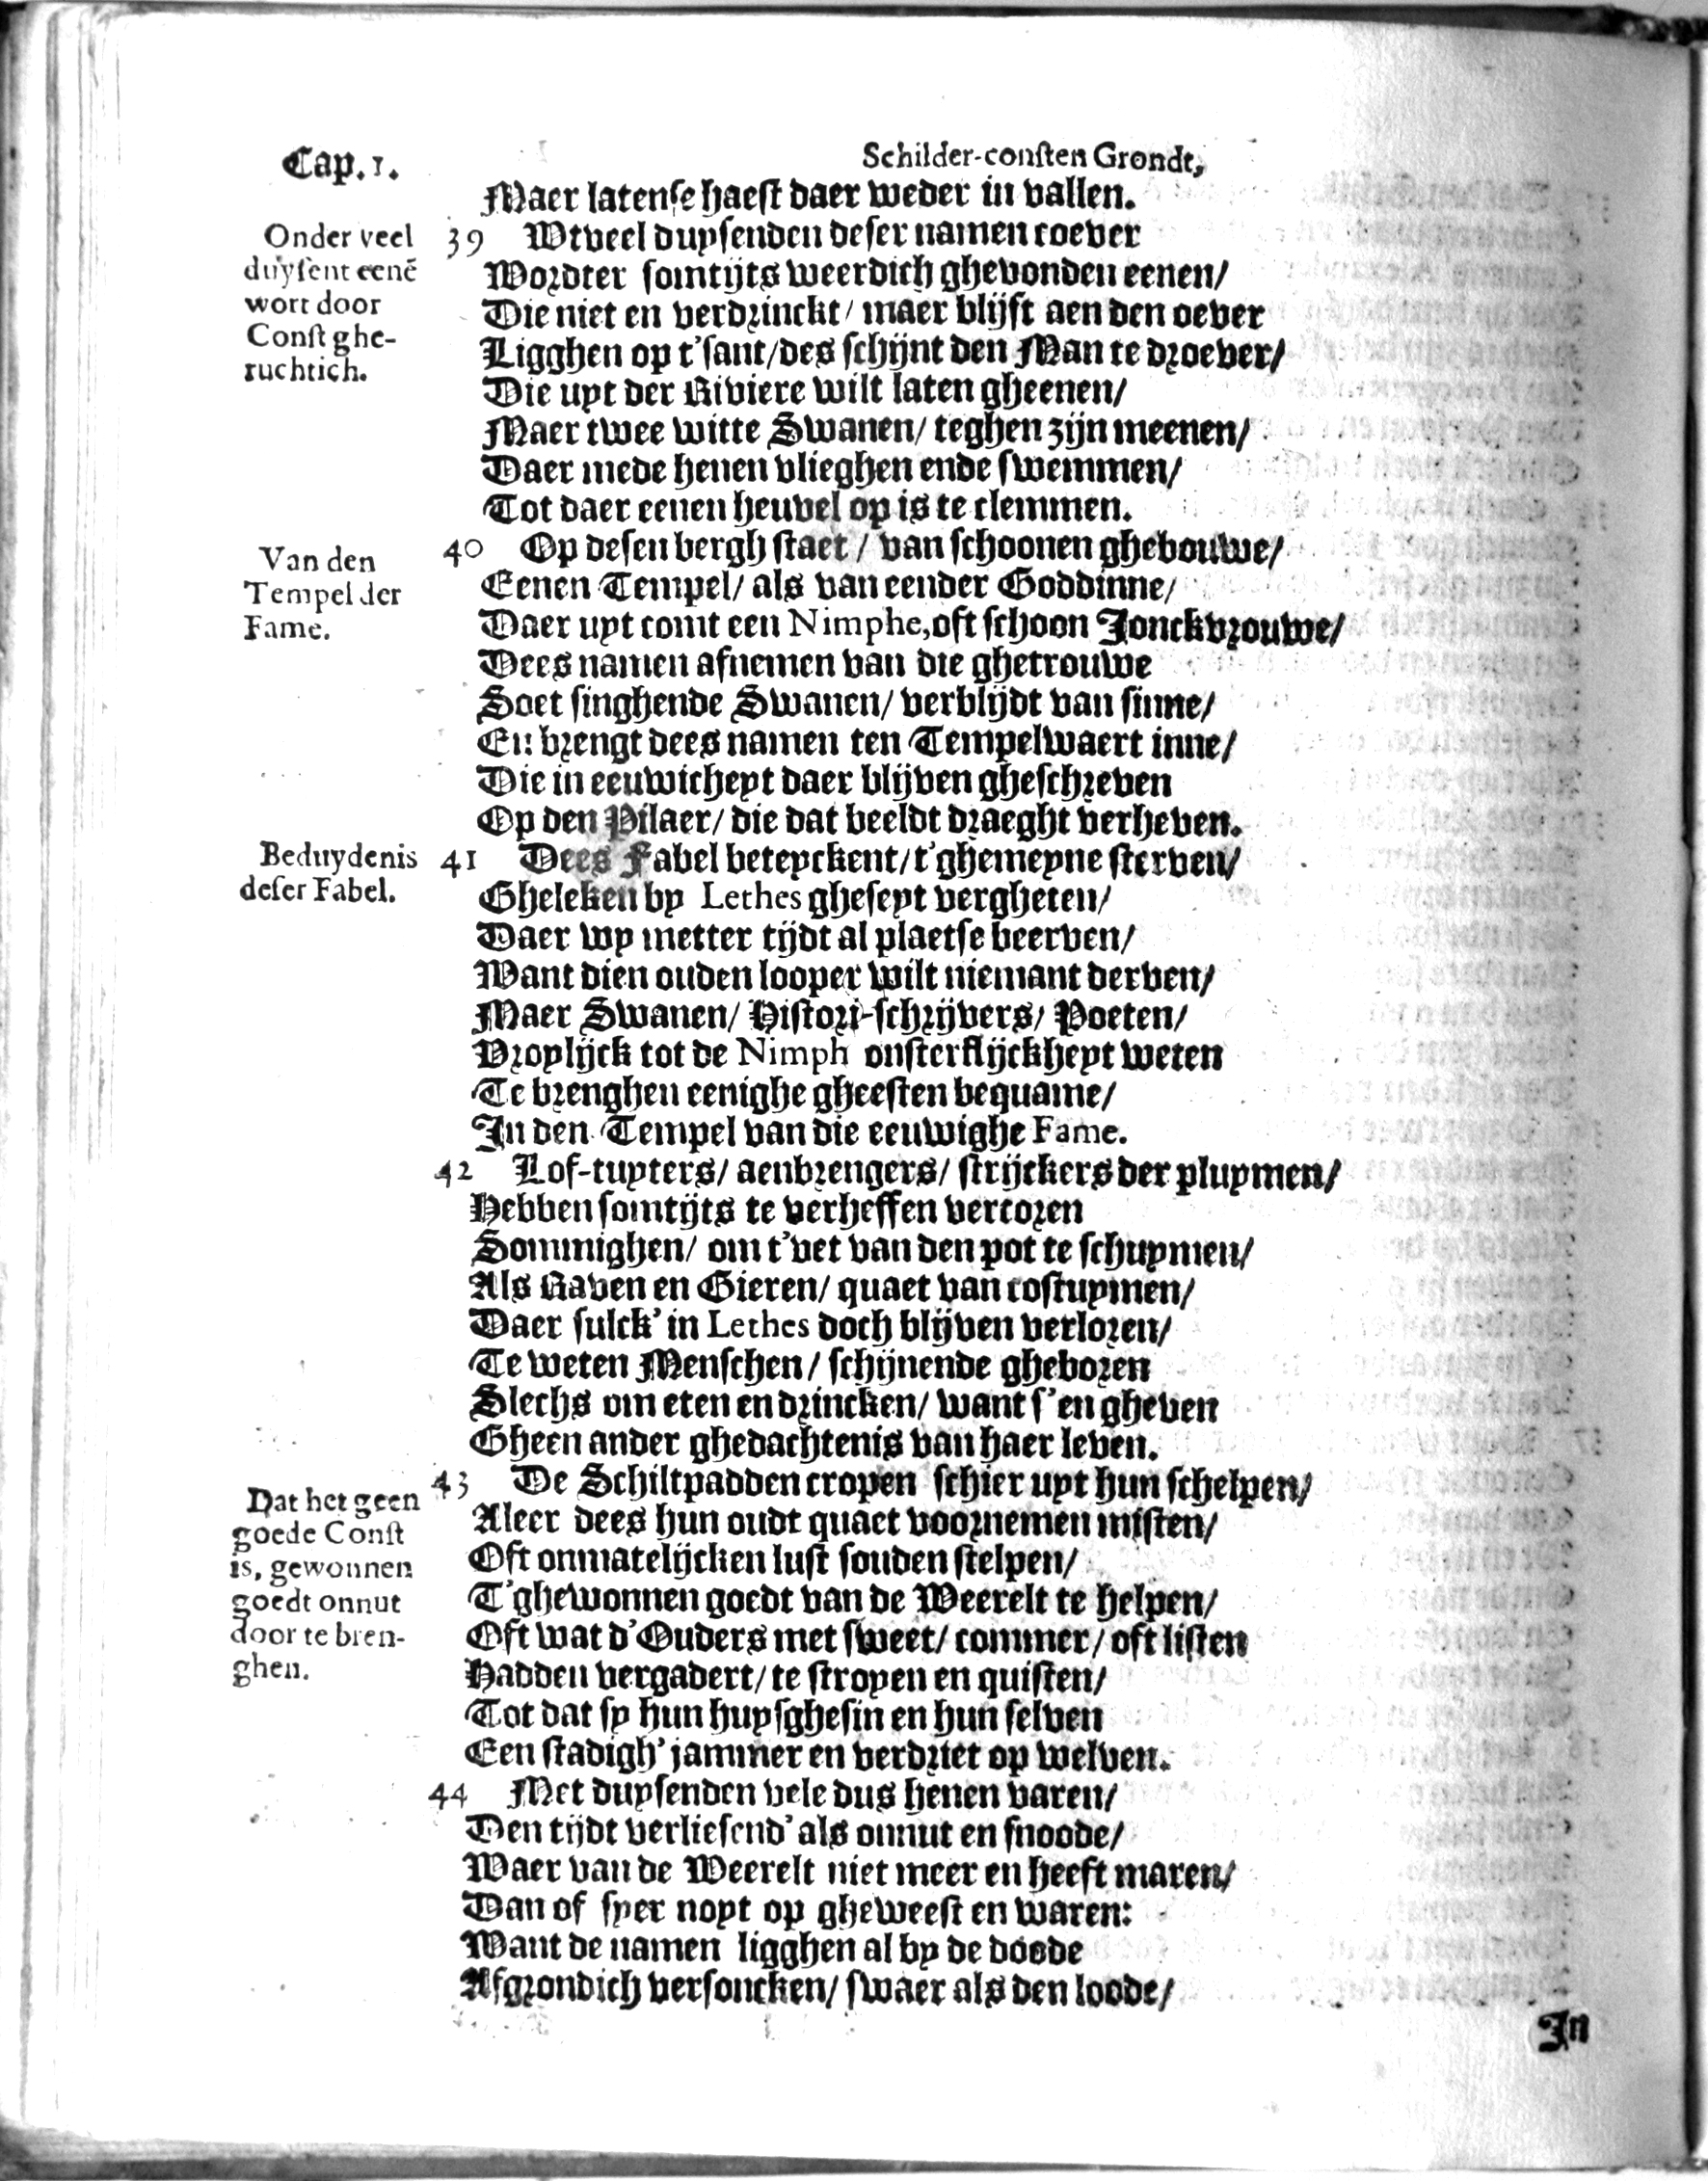 Cap. 1.
Schilder-consten Grondt,
Maer latense haest daer weder in vallen.
Onder veel
duysent eenē
wort door
Const ghe-
ruchtich.
39 Wtveel duysenden deser namen coever
Wordter somtijts weerdich ghevonden eenen/
Die niet en verdrinckt/ maer blijft aen den oever
Ligghen op t'sant/des schijnt den Man te droever/
Die uyt der Riviere wilt laten gheenen/
Maer twee witte Swanen/ teghen zijn meenen/
Daer mede henen vlieghen ende swemmen/
Tot daer eenen heuvel op is te clemmen.
Van den
Tempel der
Fame.
40 Op desen bergh staet/ van schoonen ghebouwe/
Eenen Tempel/ als van eender Goddinne/
Daer uyt comt een Nimphe,oft schoon Jonckvrouwe/
Dees namen afnemen van die ghetrouwe
Soet singhende Swanen/ verblijdt van sinne/
En brengt dees namen ten Tempelwaert inne/
Die in eeuwicheyt daer blijven gheschreven
Op den Pilaer/ die dat beeldt draeght verheven.
Beduydenis
deser Fabel.
41 Dees Fabel beteyckent/t'ghemeyne sterven/
Gheleken by Lethes gheseyt vergheten/
Daer wy metter tijdt al plaetse beerven/
Want dien ouden looper wilt niemant derven/
Maer Swanen/ Histori-schrijvers/ Poeten/
Vroylijck tot de Nimph onsterflijckheyt weten
Te brenghen eenighe gheesten bequame/
In den Tempel van die eeuwighe Fame.
42 Lof-tuyters/ aenbrengers/ strijckers der pluymen/
Hebben somtijts te verheffen vercoren
Sommighen/ om t'vet van den pot te schuymen/
Als Raven en Gieren/ quaet van costuymen/
Daer sulck' in Lethes doch blijven verloren/
Te weten Menschen/ schijnende gheboren
Slechs om eten en drincken/ want s'en gheven
Gheen ander ghedachtenis van haer leven.
Dat het geen
goede Const
is, gewonnen
goedt onnut
door te bren-
ghen.
43 De Schiltpadden cropen schier uyt hun schelpen/
Aleer dees hun oudt quaet voornemen misten/
Oft onmatelijcken lust souden stelpen/
T'ghewonnen goedt van de Weerelt te helpen/
Oft wat d'Ouders met sweet/ commer/ oft listen
Hadden vergadert/ te stroyen en quisten/
Tot dat sy hun huysghesin en hun selven
Een stadigh' jammer en verdriet op welven.
44 Met duysenden vele dus henen varen/
Den tijdt verliesend' als onnut en snoode/
Waer van de Weerelt niet meer en heeft maren/
Dan of syer noyt op gheweest en waren:
Want de namen ligghen al by de doode
Afgrondich versoncken/ swaer als den loode/
In